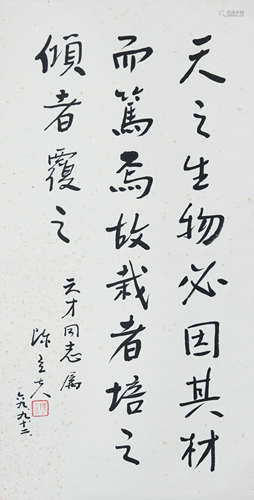 天之生物必因其材
而篤焉故栽者培之
傾者覆之
天才同志屬
陈立夫
六九、九、十二